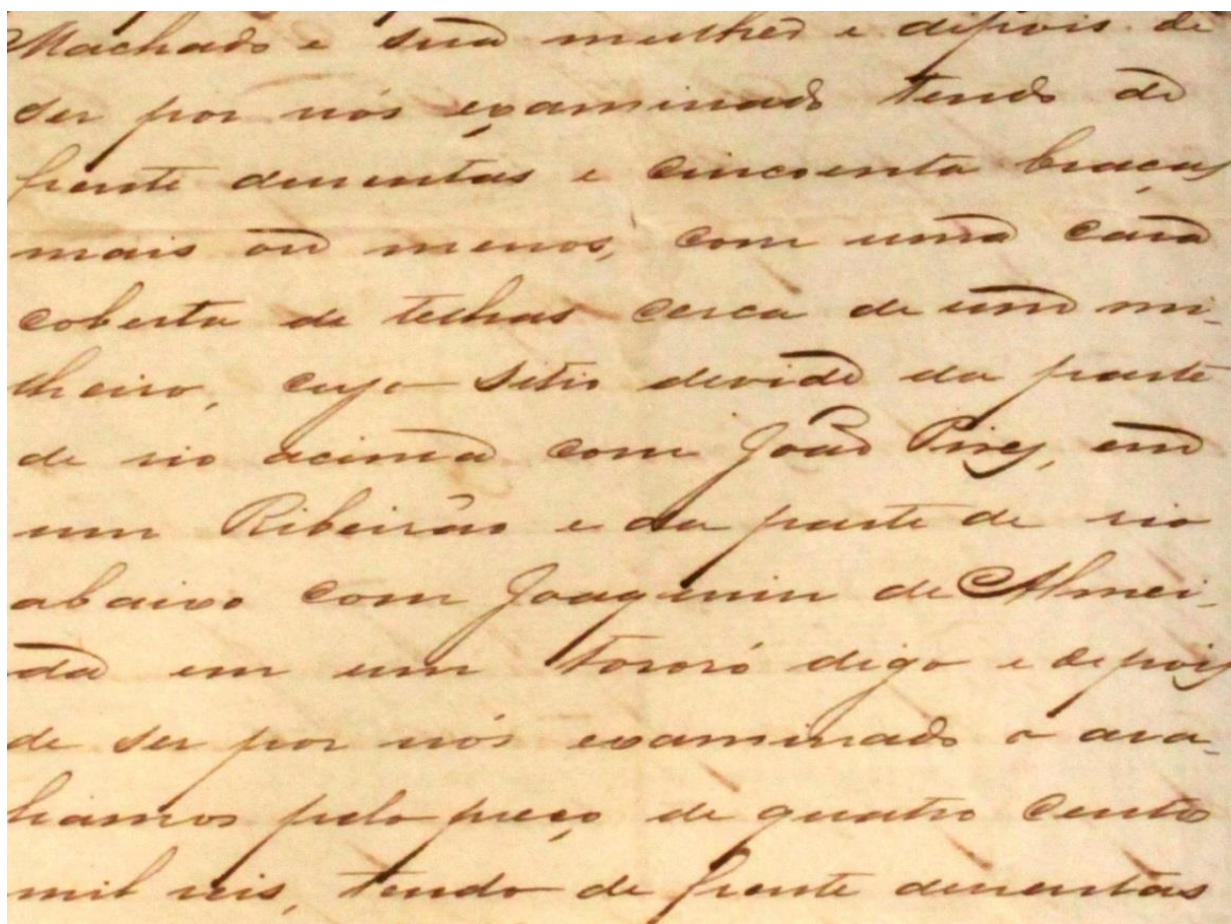 Machado e sua mulher e depois de
ser por nós examinado tendo de
frente duzentas e cincoenta braças
mais ou menos, com uma casa
coberta de telhas cerca de um mi-
lheiro, cujo sitio devide da parte
de rio acima com João Pires, em
um Ribeirão e da parte de rio
abaixo com Joaquim de Almei-
da em um tororó digo e depois
de ser por nós examinado o ava-
liamos pelo preço de quatro centos
mil reis, tendo de frente duzentas